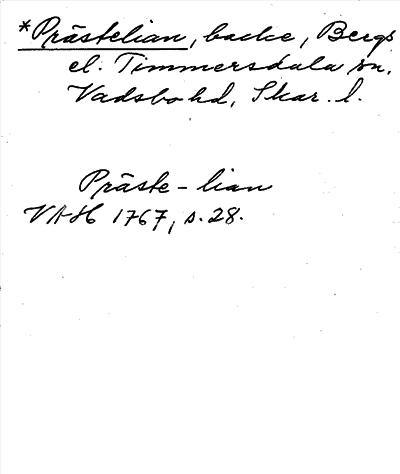 *Prästelian, backe, Bergs
el. Timmersdala sn,
Vadsbo hd, Skar. l.
Präste-lian
VAH 1767, s. 28.